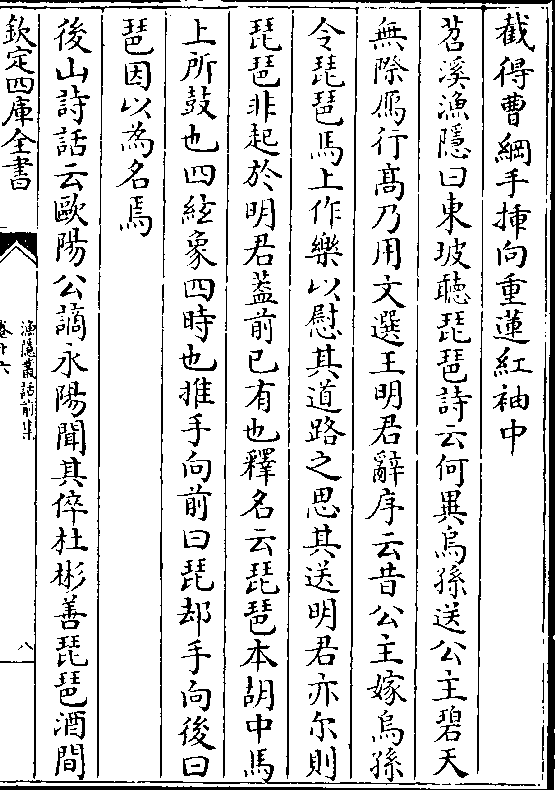 截得曹綱手挿向重蓮紅袖中
苕溪漁隱曰東坡聽琵琶詩云何異烏孫送公主碧天
無際鴈行髙乃用文選王明君辭序云昔公主嫁烏孫
令琵琶馬上作樂以慰其道路之思其送明君亦尓則
琵琶非起於明君葢前已有也釋名云琵琶本胡中馬
上所鼓也四絃象四時也推手向前曰琵却手向後曰
琶因以為名焉
後山詩話云歐陽公謫永陽聞其倅杜彬善琵琶酒間
欽定四庫全書
漁隱叢話前集
卷十六
八